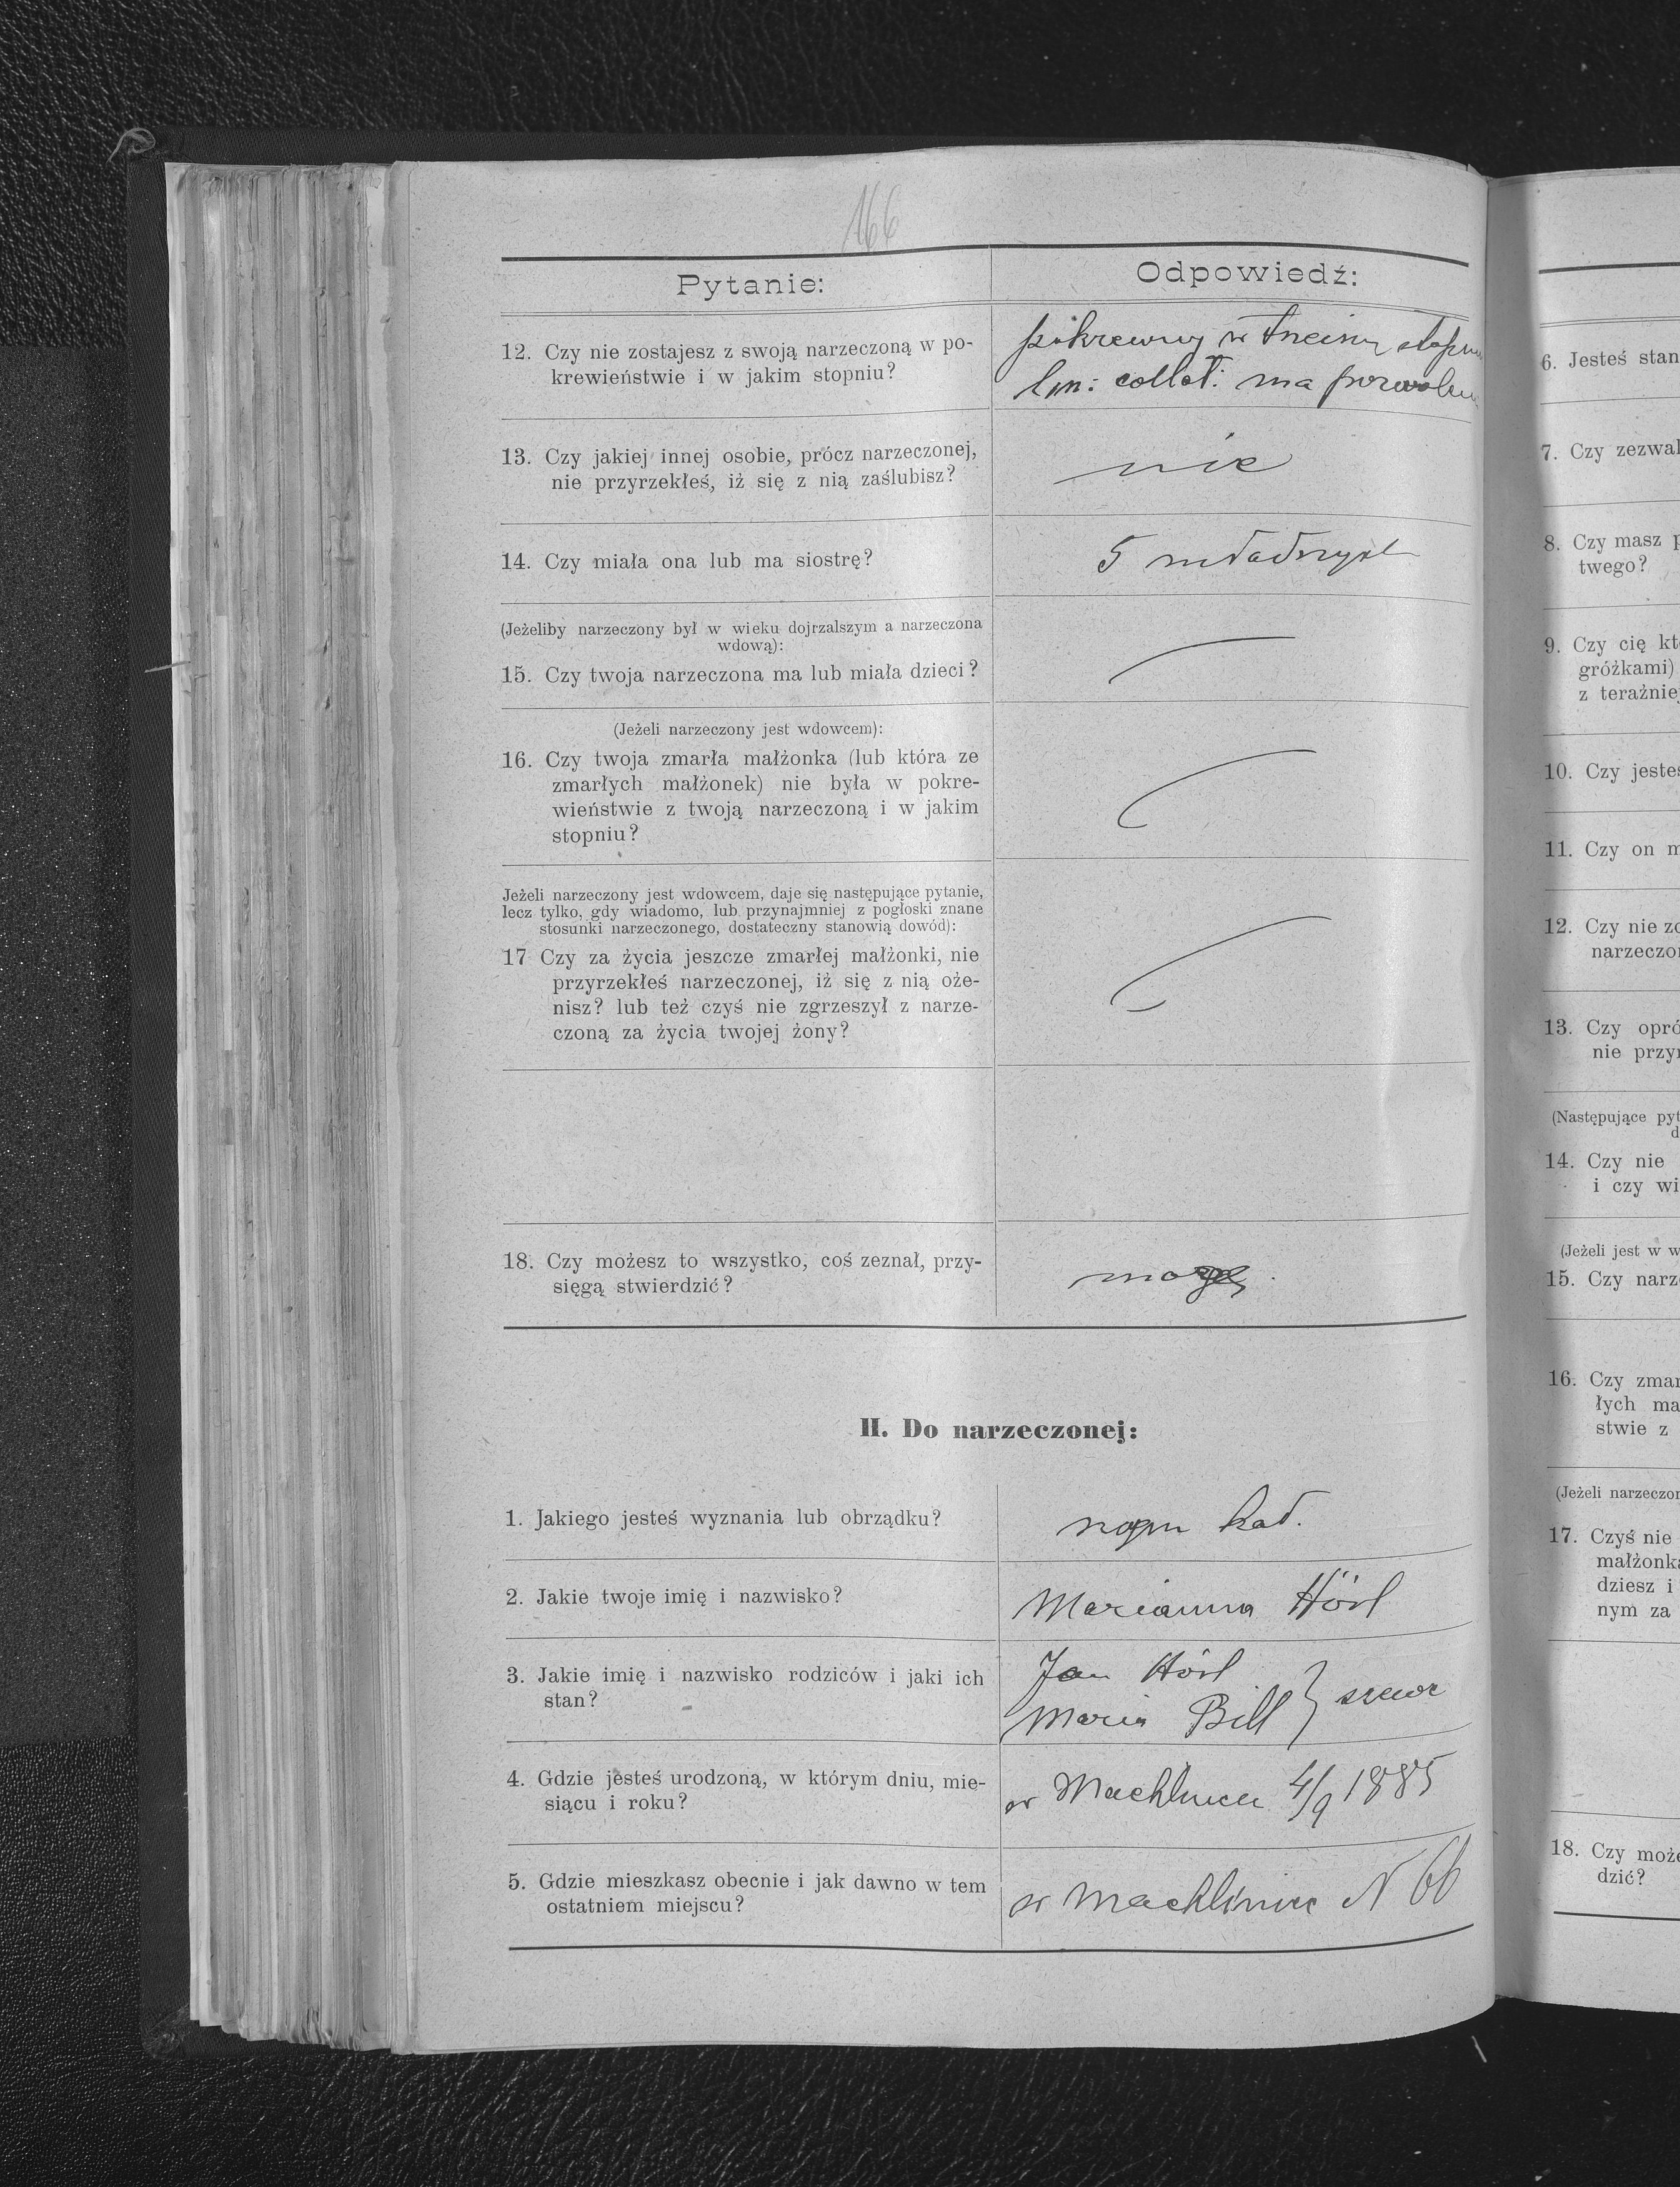 166
Pytanie:
Odpowiedź:
12. Czy nie zostajesz z swoją narzeczoną w po-
krewieństwie i w jakim stopniu?
pokrewny w trzecim stopniu
lin: collat: ma pozwolen
13. Czy jakiej innej osobie, prócz narzeczonej,
nie przyrzekłeś, iż się z nią zaślubisz?
nie
14. Czy miała ona lub ma siostrę?
5 młodszych
(Jeżeliby narzeczony był w wieku dojrzalszym a narzeczona
wdową):
15. Czy twoja narzeczona ma lub miała dzieci?
(Jeżeli narzeczony jest wdowcem):
16. Czy twoja zmarła małżonka (lub która ze
zmarłych małżonek) nie była w pokre-
wieństwie z twoją narzeczoną i w jakim
stopniu?
Jeżeli narzeczony jest wdowcem, daje się następujące pytanie,
lecz tylko, gdy wiadomo, lub przynajmniej z pogłoski znane
stosunki narzeczonego, dostateczny stanowią dowód):
17 Czy za życia jeszcze zmarłej małżonki, nie
przyrzekłeś narzeczonej, iż się z nią oże-
nisz? lub też czyś nie zgrzeszył z narze-
czoną za życia twojej żony?
18. Czy możesz to wszystko, coś zeznał, przy-
sięgą stwierdzić?
mogę
II. Do narzeczonej:
1. Jakiego jesteś wyznania lub obrządku?
rzym kat.
2. Jakie twoje imię i nazwisko?
Marianna Hösl
3. Jakie imię i nazwisko rodziców i jaki ich
stan?
Jan Hösl
Maria Bill } szewc
4. Gdzie jesteś urodzoną, w którym dniu, mie-
siącu i roku?
w Machlincu 4/9 1885
5. Gdzie mieszkasz obecnie i jak dawno w tem
ostatniem miejscu?
w Machlincu N 66
6. Jesteś stan
7. Czy zezwal
8. Czy masz p
twego?
9. Czy cię kt
gróżkami)
z teraźnie
10. Czy jesteś
11. Czy on m
12. Czy nie zo
narzeczo
13. Czy opró
nie przy
(Następujące pyt
d
14. Czy nie
i czy wi
(Jeżeli jest w w
15. Czy narz
16. Czy zmar
łych ma
stwie z
(Jeżeli narzeczon
17. Czyś nie
małżonka
dziesz i
nym za
18. Czy może
dzić?